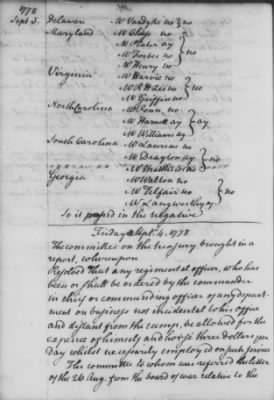 1778
Sept 3. Delaware Mr Vandyke no } no
Maryland Mr Chase no
Mr Plater ay } no
Mr Forbes no
Mr Henry no
Virginia Mr Harvie no
Mr R H Lee no } no
Mr Griffin no
North Carolina Mr Penn no
Mr Harnett ay } ay
Mr Williams ay
South Carolina Mr Laurens no
Mr Drayton ay } no
Mr Matthews no
Georgia Mr Walton no
Mr Telfair no } no
Mr Langworthy ay
So it passed in the negative
Friday Sept. 4. 1778
The committee on the treasury brought in a
report, whereupon
Resolved that any regimental officer, who has
been or shall be ordered by the commander
in chief or commanding officer of any depart
ment on business not incidental to his office
and distant from the camp, be allowed for the
expence of himself and horse three dollars per
day whilst necessarily employed on such service
The committee to whom was referred the letter
of the 26 Aug. from the board of war relative to the